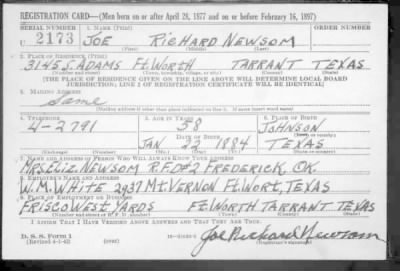 REGISTRATION CARD—(Men born on or after April 28, 1877 and on or before February 16, 1897)
SERIAL NUMBER 1. NAME (Print) ORDER NUMBER
U 2173 JOE RICHARD NEWSOM
(First) (Middle) (Last)
2. PLACE OF RESIDENCE (Print)
3145 S. ADAMS FT. WORTH TARRANT TEXAS
(Number and street) (Town, township, village, or city) (County) (State)
[THE PLACE OF RESIDENCE GIVEN ON THE LINE ABOVE WILL DETERMINE LOCAL BOARD
JURISDICTION; LINE 2 OF REGISTRATION CERTIFICATE WILL BE IDENTICAL]
3. MAILING ADDRESS
Same
[Mailing address if other than place indicated on line 2. If same insert word same]
4. TELEPHONE 5. AGE IN YEARS 6. PLACE OF BIRTH
4-2791 58 JOHNSON
DATE OF BIRTH (Town or county)
JAN. 22 1884 TEXAS
(Mo.) (Day) (Yr.) (State or country)
7. NAME AND ADDRESS OF PERSON WHO WILL ALWAYS KNOW YOUR ADDRESS
MRS. ELIZ. NEWSOM R.F.D#2 FREDERICK OK.
8. EMPLOYER'S NAME AND ADDRESS
W. M. WHITE 2937 MT. VERNON FT. WORT, TEXAS
9. PLACE OF EMPLOYMENT OR BUSINESS
FRISCO WEST YARDS FT. WORTH TARRANT TEXAS
(Number and street or R. F. D. number) (Town) (County) (State)
I AFFIRM THAT I HAVE VERIFIED ABOVE ANSWERS AND THAT THEY ARE TRUE.
D. S. S. Form 1
(Revised 4-1-42) (over)
Joe Richard Newsom
(Registrant's signature)